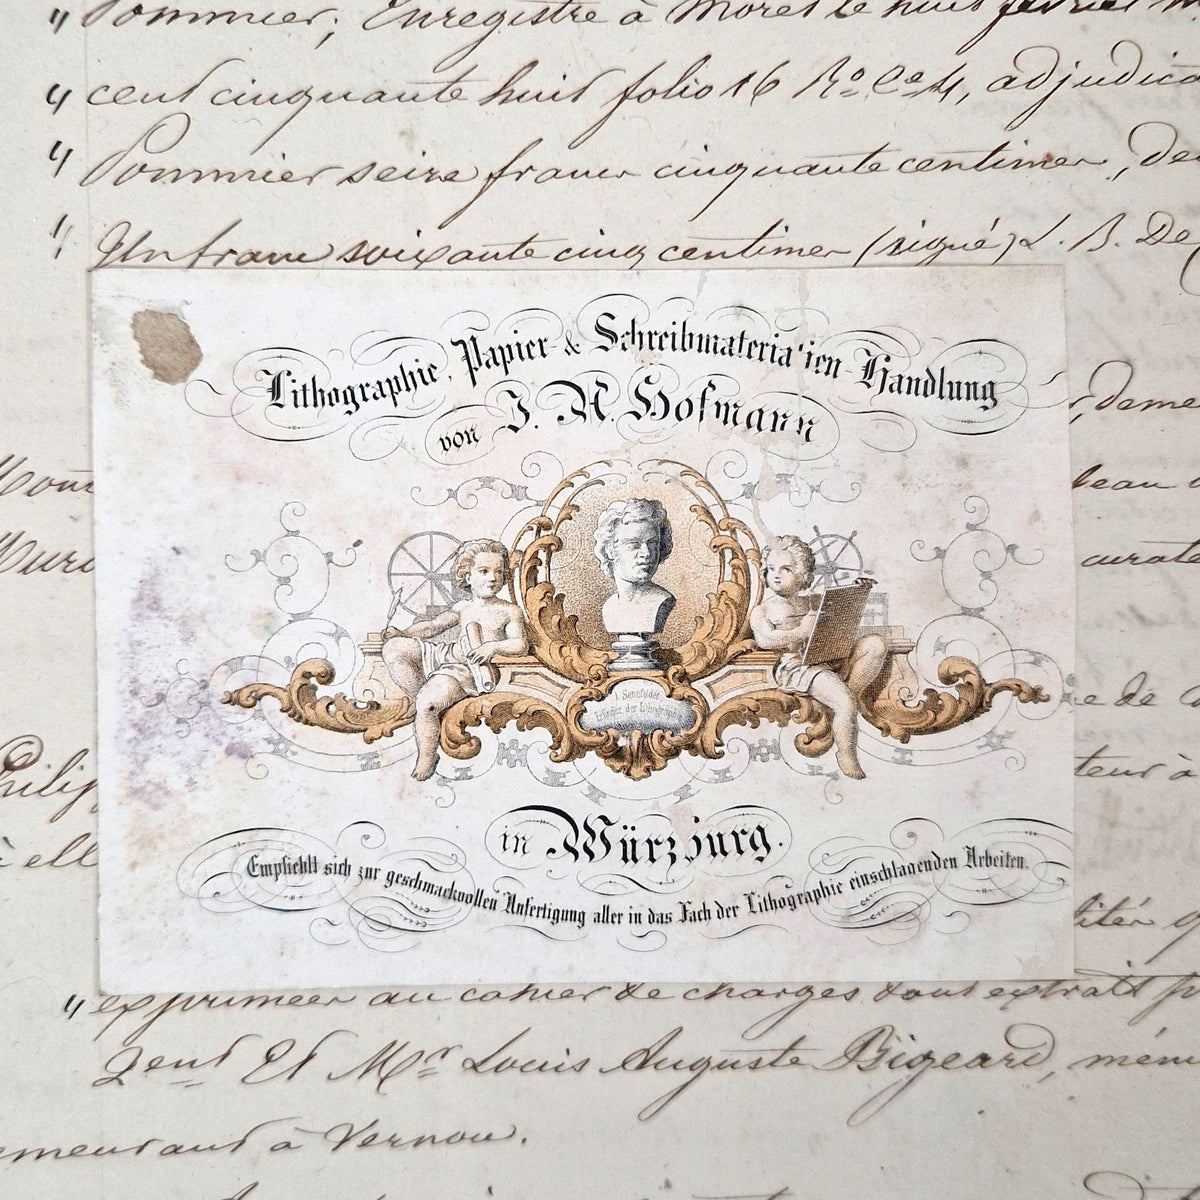 " Sommier; Enregistré à Moret le huit février m
" cent cinquante huit folio 16 Ro Ce 4, adjudica
" Sommier seize francs cinquante centimes, de
" Un franc soixante cinq centimes (signé) L. B. De
Lithographie, Papier & Schreibmaterialien-Handlung
von J. N. Hofmann
r, deme
beau
curate
A. Senefelder
Erfinder der Lithographie
e de
Philip
teur à
à ell
in Würzburg.
Empfiehlt sich zur geschmackvollen Anfertigung aller in das Fach der Lithographie einschlagenden Arbeiten.
" exprimées au cahier de charges dont extrait p
Et Mr Louis Auguste Bigeard, menu
emeurant à Vernou.